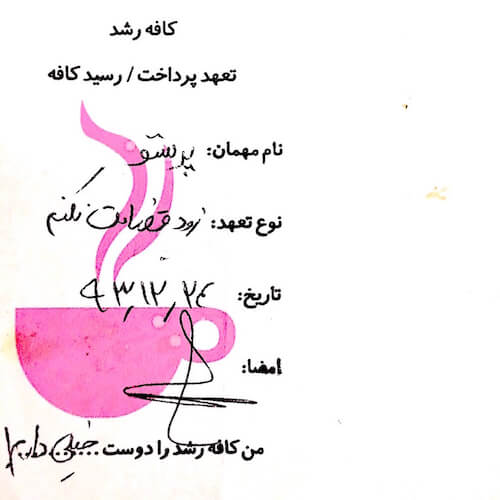 کافه رشد
تعهد پرداخت / رسید کافه
نام مهمان: پرستو
نوع تعهد: زود قضاوت نکنم
تاریخ: ۹۳,۱۲,۲۴
امضا:
من کافه رشد را دوست... خیلی دارم!